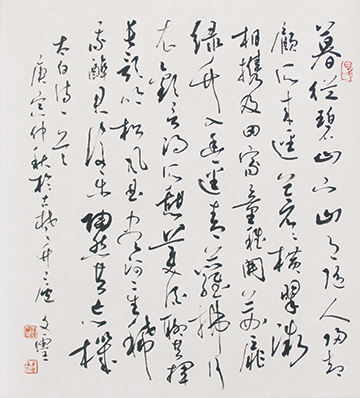 暮從碧山下山月隨人歸卻
顧所來徑蒼蒼橫翠微
相攜及田家童稚開荊扉
綠竹入幽徑青蘿拂行
衣歡言得所憩美酒聊共揮
長歌吟松風曲盡河星稀
我醉君復樂陶然共忘機
太白詩一首
庚寅仲秋於